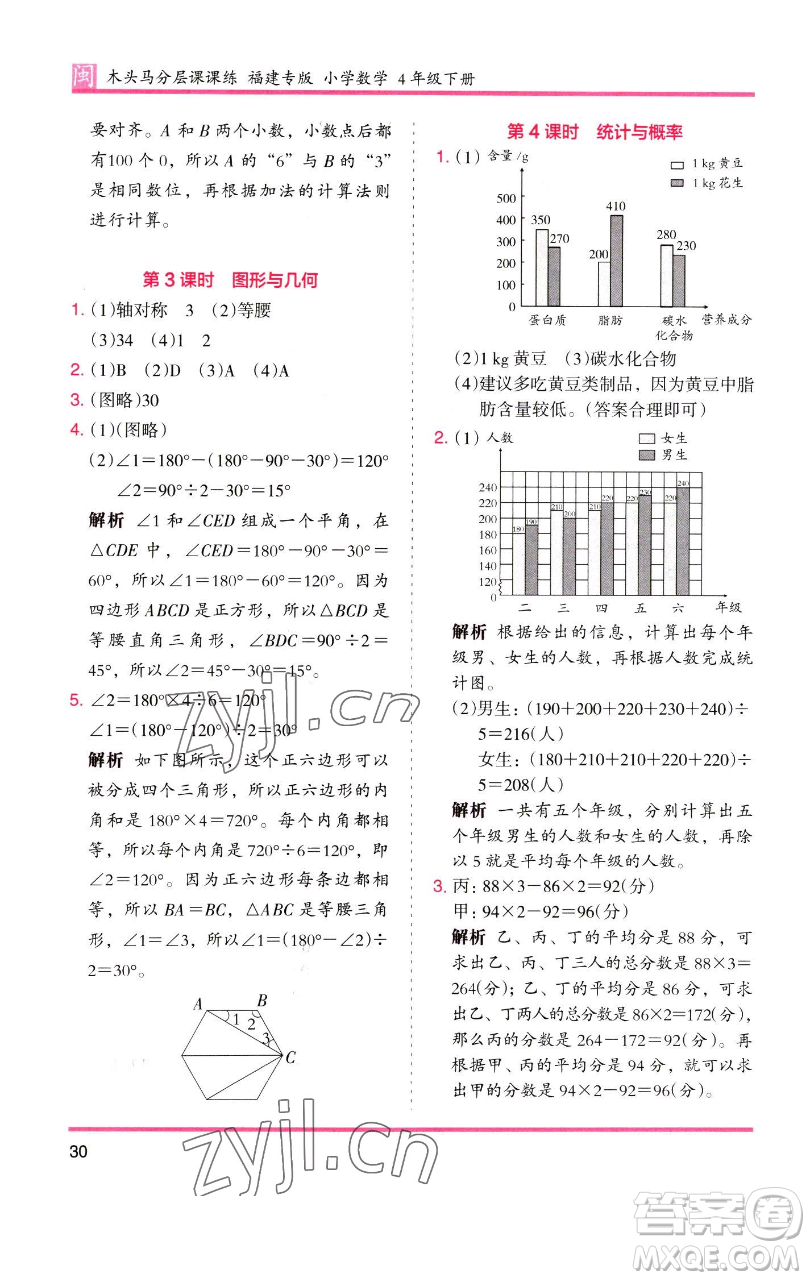 闽 木头马分层课课练 福建专版 小学数学 4年级下册
要对齐。A 和 B 两个小数，小数点后都
有100 个 0，所以 A 的“6”与 B 的“3”
是相同数位，再根据加法的计算法则
进行计算。
第 3 课时 图形与几何
1. (1)轴对称 3 (2)等腰
(3)34 (4)1 2
2. (1)B (2)D (3)A (4)A
3. (图略)30
4. (1)(图略)
(2)∠1=180°−(180°−90°−30°)=120°
∠2=90°÷2−30°=15°
解析 ∠1 和∠CED 组成一个平角，在
△CDE 中，∠CED=180°−90°−30°=
60°，所以∠1=180°−60°=120°。因为
四边形 ABCD 是正方形，所以△BCD 是
等腰直角三角形，∠BDC=90°÷2=
45°，所以∠2=45°−30°=15°。
5. ∠2=180°×4÷6=120°
∠1=(180°−120°)÷2=30°
解析 如下图所示，这个正六边形可以
被分成四个三角形，所以正六边形的内
角和是 180°×4=720°。每个内角都相
等，所以每个内角是 720°÷6=120°，即
∠2=120°。因为正六边形每条边都相
等，所以 BA=BC，△ABC 是等腰三角
形，∠1=∠3，所以∠1=(180°−∠2)÷
2=30°。
A B
1 2
3
C
30
第 4 课时 统计与概率
1. (1) 含量/g
1 kg 黄豆
1 kg 花生
500
400
300
200
100
0
350 270 200 410 280 230
蛋白质 脂肪 碳水化合物 营养成分
(2)1 kg 黄豆 (3)碳水化合物
(4)建议多吃黄豆类制品，因为黄豆中脂
肪含量较低。(答案合理即可)
2. (1) 人数
女生
男生
240
220
200
180
160
140
120
0
180 190 210 200 210 220 220 230 220 240
二 三 四 五 六 年级
解析 根据给出的信息，计算出每个年
级男、女生的人数，再根据人数完成统
计图。
(2)男生：(190+200+220+230+240)÷
5=216(人)
女生：(180+210+210+220+220)÷
5=208(人)
解析 一共有五个年级，分别计算出五
个年级男生的人数和女生的人数，再除
以 5 就是平均每个年级的人数。
3. 丙：88×3−86×2=92(分)
甲：94×2−92=96(分)
解析 乙、丙、丁的平均分是 88 分，可
求出乙、丙、丁三人的总分数是 88×3=
264(分)；乙、丁的平均分是 86 分，可求
出乙、丁两人的总分数是 86×2=172(分)，
那么丙的分数是 264−172=92(分)。再
根据甲、丙的平均分是 94 分，可以求
出甲的分数是 94×2−92=96(分)。
zyjl.cn
zyjl.cn
答案圈
MXQE.COM